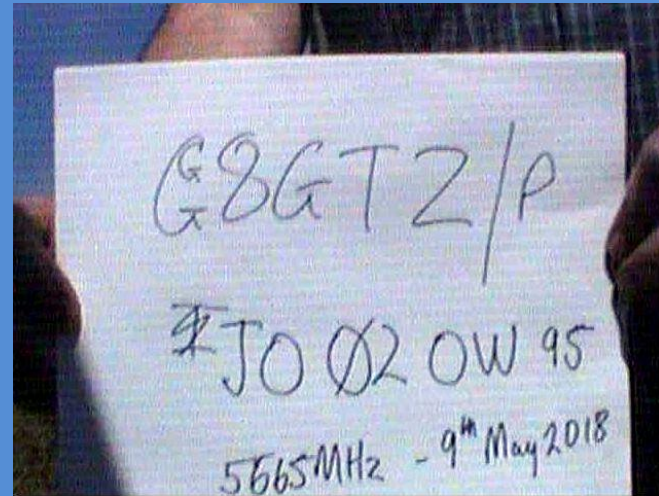 G8GTZ/P
JO Ø2 OW 95
5665MHz - 9th May 2018